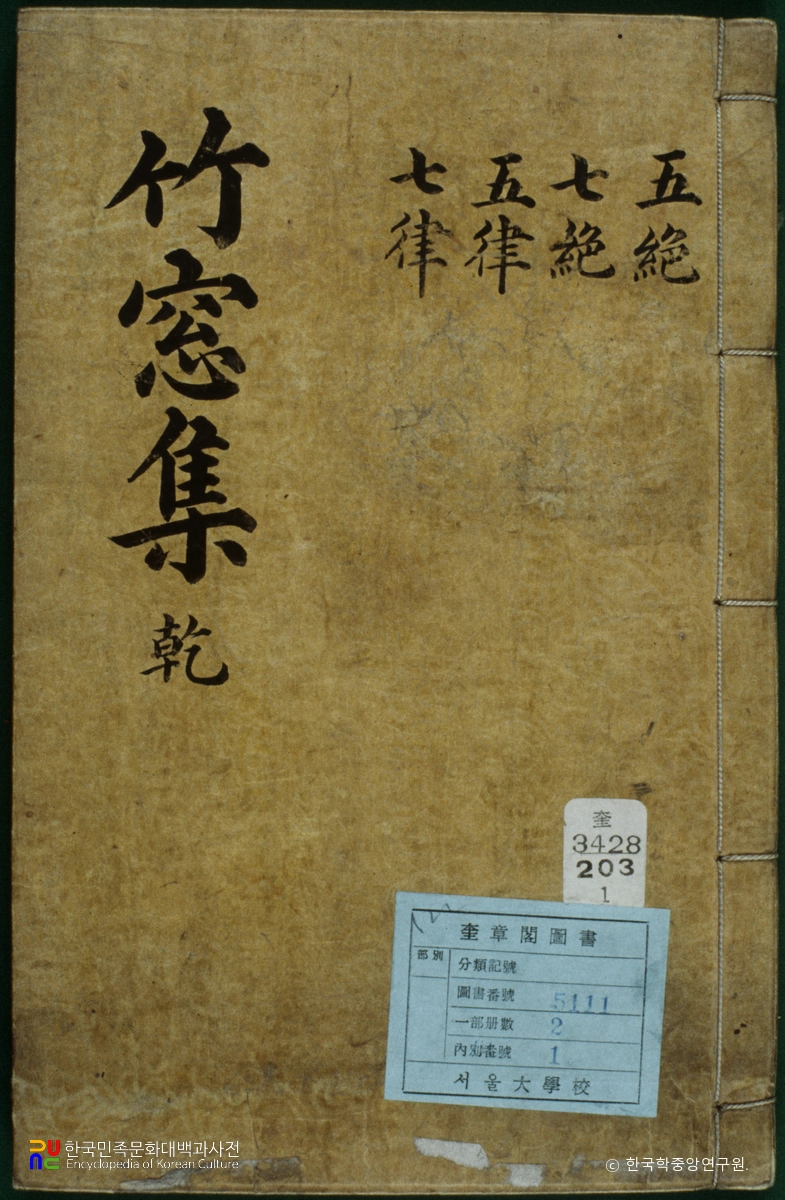 五絶
七絶
五律
七律
竹窓集 乾
奎
3428
203
1
奎章閣圖書
部別
分類記號
圖書番號 5111
一部册數 2
內別番號 1
서울大學校
한국민족문화대백과사전
Encyclopedia of Korean Culture
© 한국학중앙연구원.